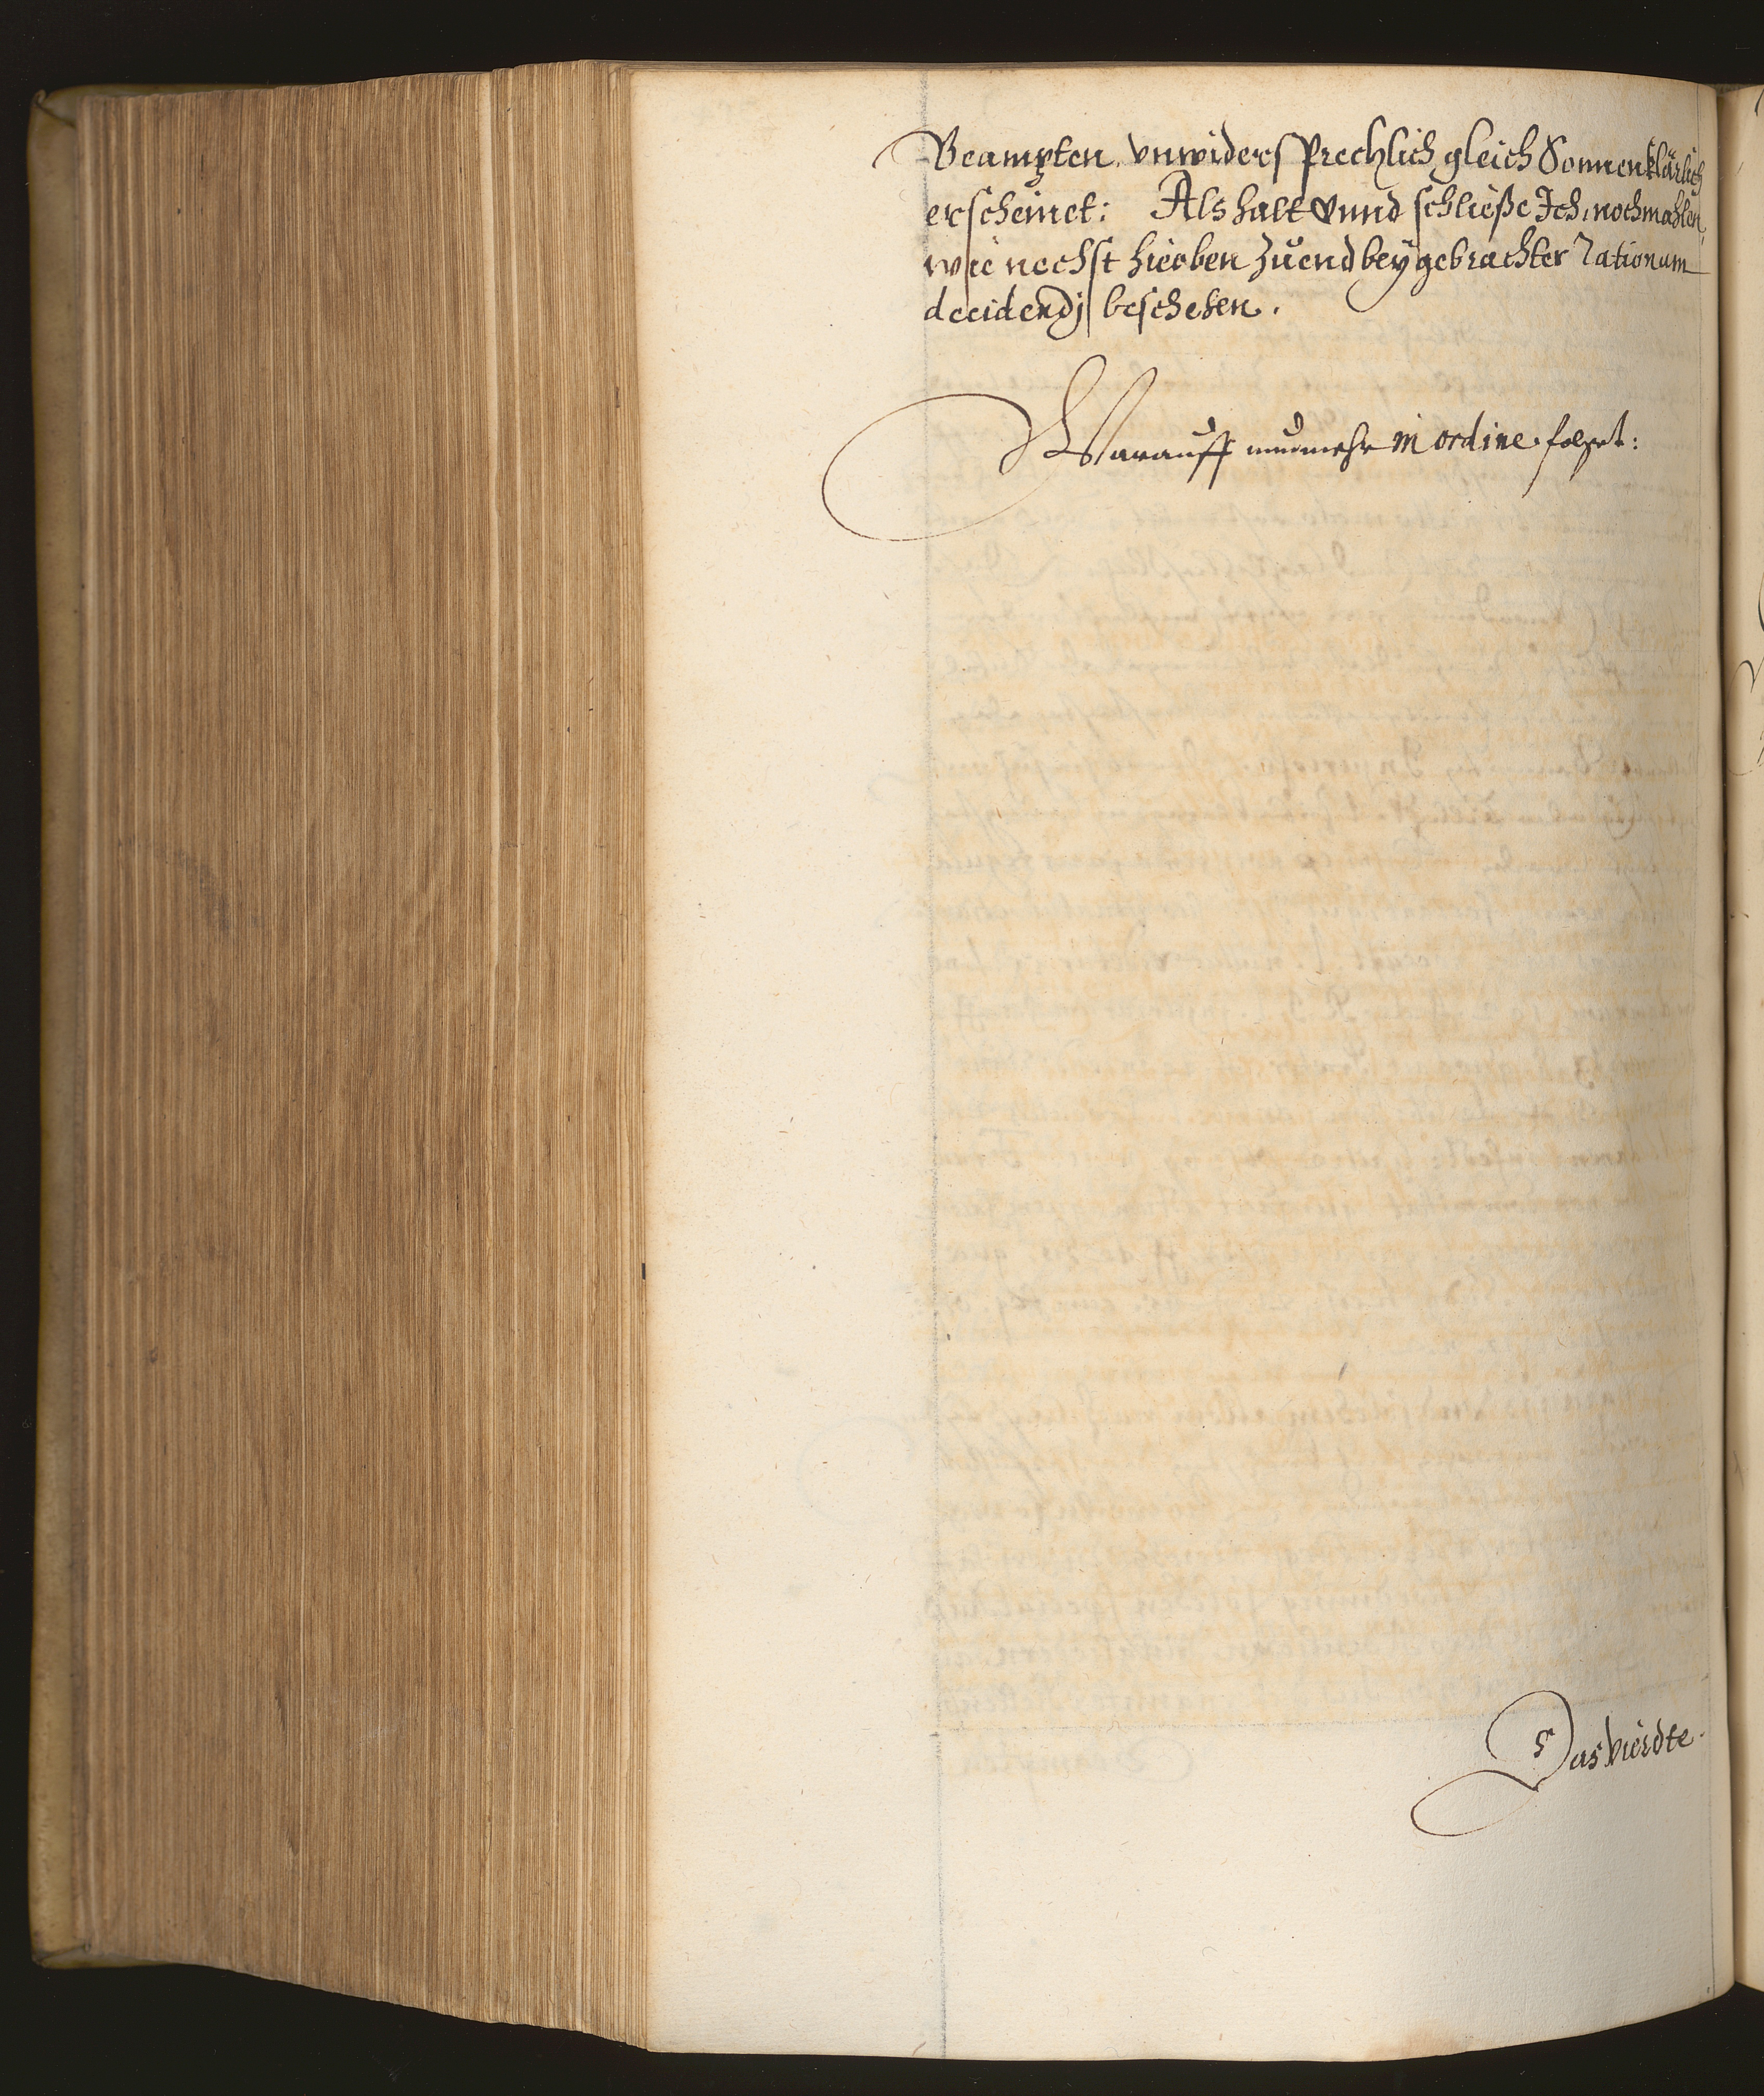 Beampten vnwidersprechlich gleich Sonnenklärlich
erscheinet: Als halt Vnnd schließe Ich, nochmahlen,
wie nechst hieoben zuend beygebrachter rationum
decidendj beschehen.
Warauff nunmehr in ordine folget:
Das vierdte